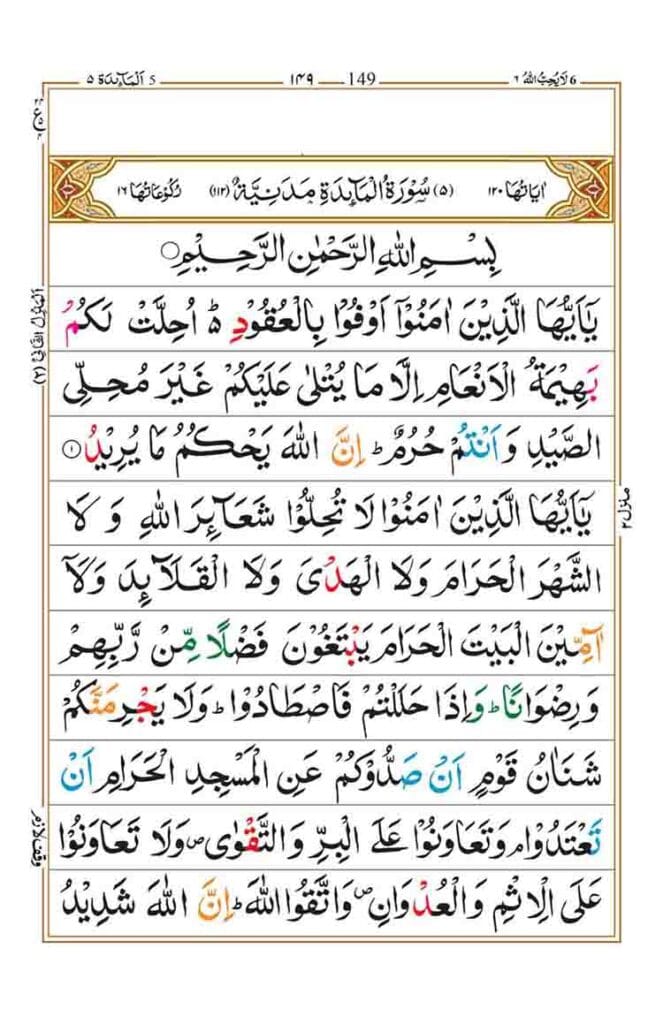 6 لَا يُحِبُّ اللهُ ٦ 149 ١٤٩ 5 اَلْمَآئِدَة ٥
اٰيَاتُهَا ١٢٠ (٥) سُوْرَةُ الْمَآئِدَةِ مَدَنِيَّةٌ (١١٢) رُكُوْعَاتُهَا ١٦
بِسْمِ اللهِ الرَّحْمٰنِ الرَّحِيْمِ ○
يٰۤاَيُّهَا الَّذِيْنَ اٰمَنُوْۤا اَوْفُوْا بِالْعُقُوْدِ ؕ اُحِلَّتْ لَكُمْ
بَهِيْمَةُ الْاَنْعَامِ اِلَّا مَا يُتْلٰى عَلَيْكُمْ غَيْرَ مُحِلِّى
الصَّيْدِ وَاَنْتُمْ حُرُمٌ ؕ اِنَّ اللهَ يَحْكُمُ مَا يُرِيْدُ ١
يٰۤاَيُّهَا الَّذِيْنَ اٰمَنُوْا لَا تُحِلُّوْا شَعَآئِرَ اللهِ وَلَا
الشَّهْرَ الْحَرَامَ وَلَا الْهَدْىَ وَلَا الْقَلَآئِدَ وَلَاۤ
آٰمِّيْنَ الْبَيْتَ الْحَرَامَ يَبْتَغُوْنَ فَضْلًا مِّنْ رَّبِّهِمْ
وَرِضْوَانًا ؕ وَاِذَا حَلَلْتُمْ فَاصْطَادُوْا ؕ وَلَا يَجْرِمَنَّكُمْ
شَنَاٰنُ قَوْمٍ اَنْ صَدُّوْكُمْ عَنِ الْمَسْجِدِ الْحَرَامِ اَنْ
تَعْتَدُوْا ۘ وَتَعَاوَنُوْا عَلَى الْبِرِّ وَالتَّقْوٰى ۖ وَلَا تَعَاوَنُوْا
عَلَى الْاِثْمِ وَالْعُدْوَانِ ۖ وَاتَّقُوا اللهَ ؕ اِنَّ اللهَ شَدِيْدُ
اَلْمَنْزِلُ الثَّانِيْ (٢)
منزل ٢
وقف لازم